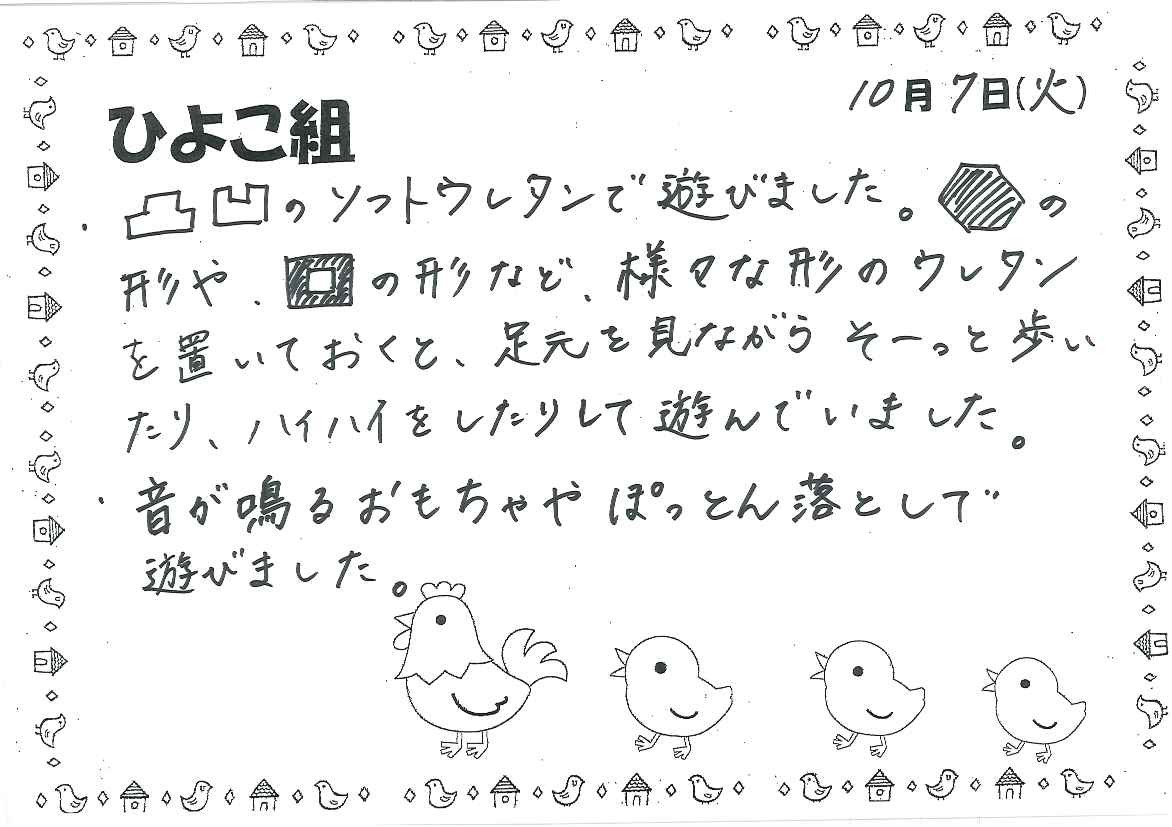 10月7日(火)
ひよこ組
・凸凹のソフトウレタンで遊びました。⬣の
形や、回の形など、様々な形のウレタン
を置いておくと、足元を見ながらそーっと歩い
たり、ハイハイをしたりして遊んでいました。
・音が鳴るおもちゃやぽっとん落としで
遊びました。